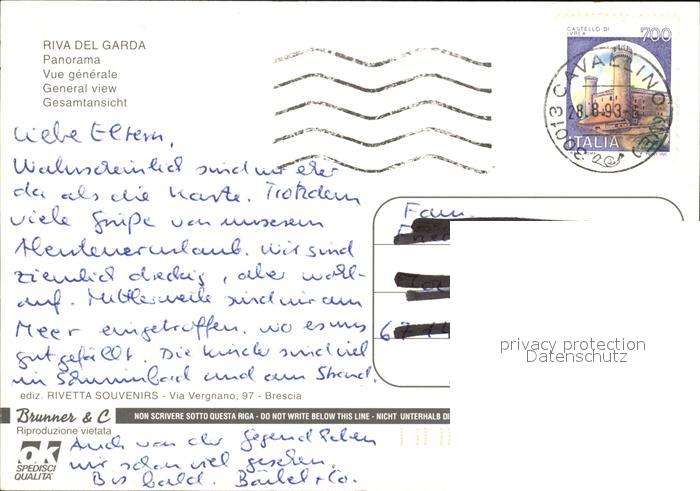 RIVA DEL GARDA
Panorama
Vue générale
General view
Gesamtansicht
CASTELLO DI
IVREA
700
ITALIA
30013 CAVALLINO (VE)
28.8.93
Liebe Eltern,
Wahrscheinlich sind wir eher
da als die Karte. Trotzdem
viele Grüße von unserem
Abenteuerurlaub. Wir sind
ziemlich dreckig, aber wohl-
auf. Mittlerweile sind wir am
Meer eingetroffen, wo es uns
gut gefällt. Die Kinder sind viel
im Schwimmbad und am Strand.
Fam.
67
privacy protection
Datenschutz
ediz. RIVETTA SOUVENIRS - Via Vergnano, 97 - Brescia
Brunner & C
NON SCRIVERE SOTTO QUESTA RIGA - DO NOT WRITE BELOW THIS LINE - NICHT UNTERHALB DI
Riproduzione vietata
ok
SPEDISCI
QUALITA'
Auch von der Gegend haben
wir schon viel gesehen.
Bis bald. Bärbel + Co.